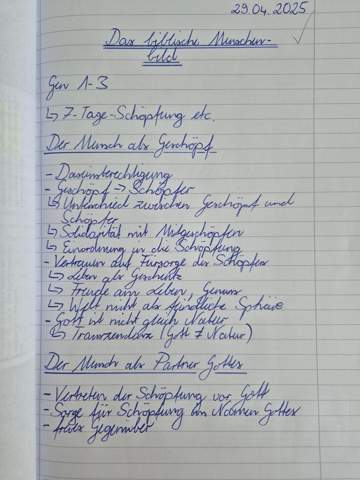 29.04.2025
Das biblische Menschen-
bild
Gen 1-3
↳ 7-Tage-Schöpfung etc.
Der Mensch als Geschöpf
- Daseinsberechtigung
- Geschöpf → Schöpfer
↳ Unterschied zwischen Geschöpf und
Schöpfer
↳ Solidarität mit Mitgeschöpfen
↳ Einordnung in die Schöpfung
- Vertrauen auf Fürsorge des Schöpfers
↳ Leben als Geschenk
↳ Freude am Leben, Genuss
↳ Welt nicht als feindliche Sphäre
- Gott ist nicht gleich Natur
↳ Transzendenz (Gott ≠ Natur)
Der Mensch als Partner Gottes
- Vertreten der Schöpfung vor Gott
- Sorge für Schöpfung im Namen Gottes
- freies Gegenüber